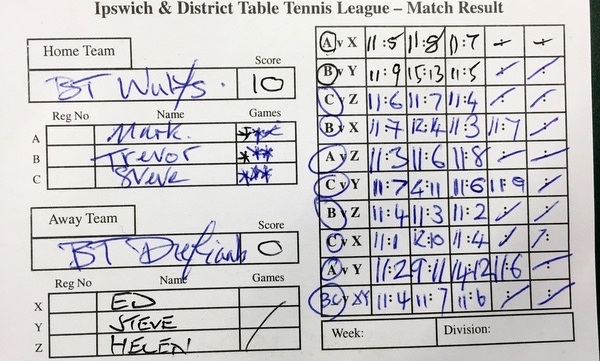 Ipswich & District Table Tennis League – Match Result
Home Team
Score
BT Wulfs. 10
Reg No Name Games
A Mark. ***
B Trevor ***
C Steve ***
Away Team
Score
BT Defiants 0
Reg No Name Games
X ED
Y STEVE
Z HELEN
A v X 11:5 11:8 11:7
B v Y 11:9 15:13 11:5
C v Z 11:6 11:7 11:4
B v X 11:7 11:3 11:7
A v Z 11:3 11:6 11:8
C v Y 11:7 4:11 11:6 11:9
B v Z 11:4 11:3 11:2
C v X 11:1 12:10 11:4
A v Y 11:2 9:11 14:12 11:6
BC v XY 11:4 11:7 11:6
Week: Division: